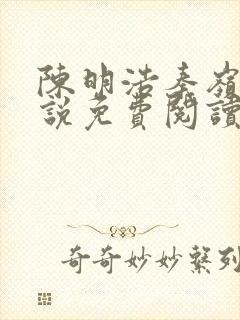 陳明浩秦嶺
說免費閱讀
奇奇妙妙繫列